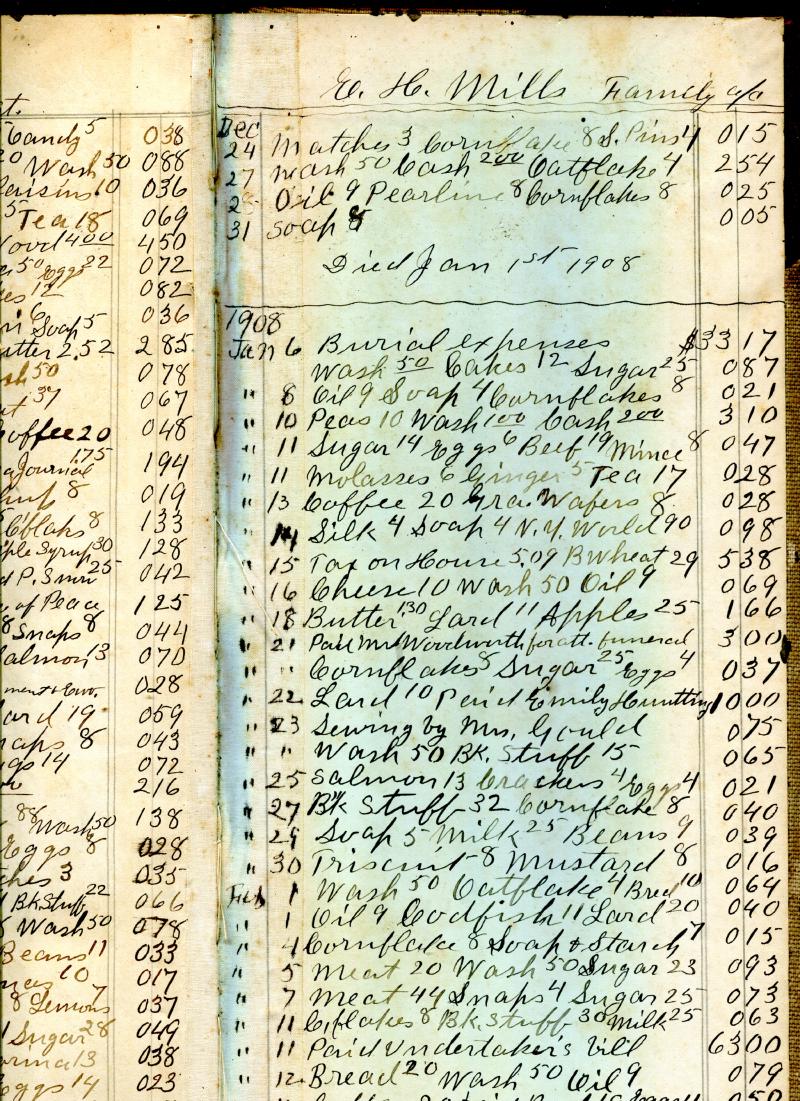 t.
Candy 5 038
20 Wash 50 088
Raisins 10 036
5 Tea 18 069
Wood 4 00 450
50 Eggs 22 072
12 082
Soap 5 036
Butter 2.52 285
Wash 50 078
37 067
Coffee 20 048
Journal 1.75 194
8 019
Cflaks 8 133
Maple Syrup 30 128
25 042
of Peace 125
8 Snaps 8 044
Salmon 13 070
028
Lard 19 059
Snaps 8 043
Eggs 14 072
216
88 Wash 1 50 138
Eggs 8 028
Matches 3 035
Bk Stuff 22 066
Wash 50 078
Beans 11 033
10 017
8 Lemons 7 037
Sugar 28 049
13 038
Eggs 14 023
E. H. Mills Family a/c
Dec
24 Matches 3 Cornflake 8 S. Pins 4 015
27 Wash 50 Cash 2 00 Oatflake 4 254
28 Oil 9 Pearline 8 Cornflakes 8 025
31 Soap 5 005
Died Jan 1st 1908
1908
Jan 6 Burial expenses $33 17
Wash 50 Cakes 12 Sugar 25 087
" 8 Oil 9 Soap 4 Cornflakes 8 021
" 10 Peas 10 Wash 1 00 Cash 2 00 310
" 11 Sugar 14 Eggs 6 Beef 19 Mince 8 047
" 11 Molasses 6 Ginger 5 Tea 17 028
" 13 Coffee 20 Gra. Wafers 8 028
" 14 Silk 4 Soap 4 N.Y. World 90 098
" 15 Tax on House 5.09 B Wheat 29 538
" 16 Cheese 10 Wash 50 Oil 9 069
" 18 Butter 1 30 Lard 11 Apples 25 166
" 21 Paid Mr Woodworth for att. funeral 300
" " Cornflakes 8 Sugar 25 Eggs 4 037
" 22 Lard 10 Paid Emily Huntting 1000
" 23 Sewing by Mrs. Gould 075
" " Wash 50 Bk. Stuff 15 065
" 25 Salmon 13 Crackers 4 Eggs 4 021
" 27 Bk Stuff 32 Cornflake 8 040
" 29 Soap 5 Milk 25 Beans 9 039
" 30 Triscuit 8 Mustard 8 016
Feb 1 Wash 50 Oatflake 4 Bred 10 064
" 1 Oil 9 Codfish 11 Lard 20 040
" 4 Cornflake 8 Soap & Starch 7 015
" 5 Meat 20 Wash 50 Sugar 23 093
" 7 Meat 44 Snaps 4 Sugar 25 073
" 11 C.flakes 8 Bk. Stuff 30 Milk 25 063
" 11 Paid Undertaker's bill 6300
" 12 Bread 20 Wash 50 Oil 9 079
050